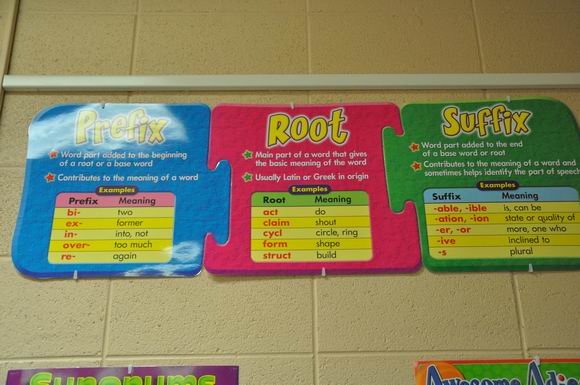 Prefix
Word part added to the beginning
of a root or a base word
Contributes to the meaning of a word
Examples
Prefix Meaning
bi- two
ex- former
in- into, not
over- too much
re- again
Root
Main part of a word that gives
the basic meaning of the word
Usually Latin or Greek in origin
Examples
Root Meaning
act do
claim shout
cycl circle, ring
form shape
struct build
Suffix
Word part added to the end
of a base word or root
Contributes to the meaning of a word and
sometimes helps identify the part of speech
Examples
Suffix Meaning
-able, -ible is, can be
-ation, -ion state or quality of
-er, -or more, one who
-ive inclined to
-s plural
Synonyms
Awesome Adje